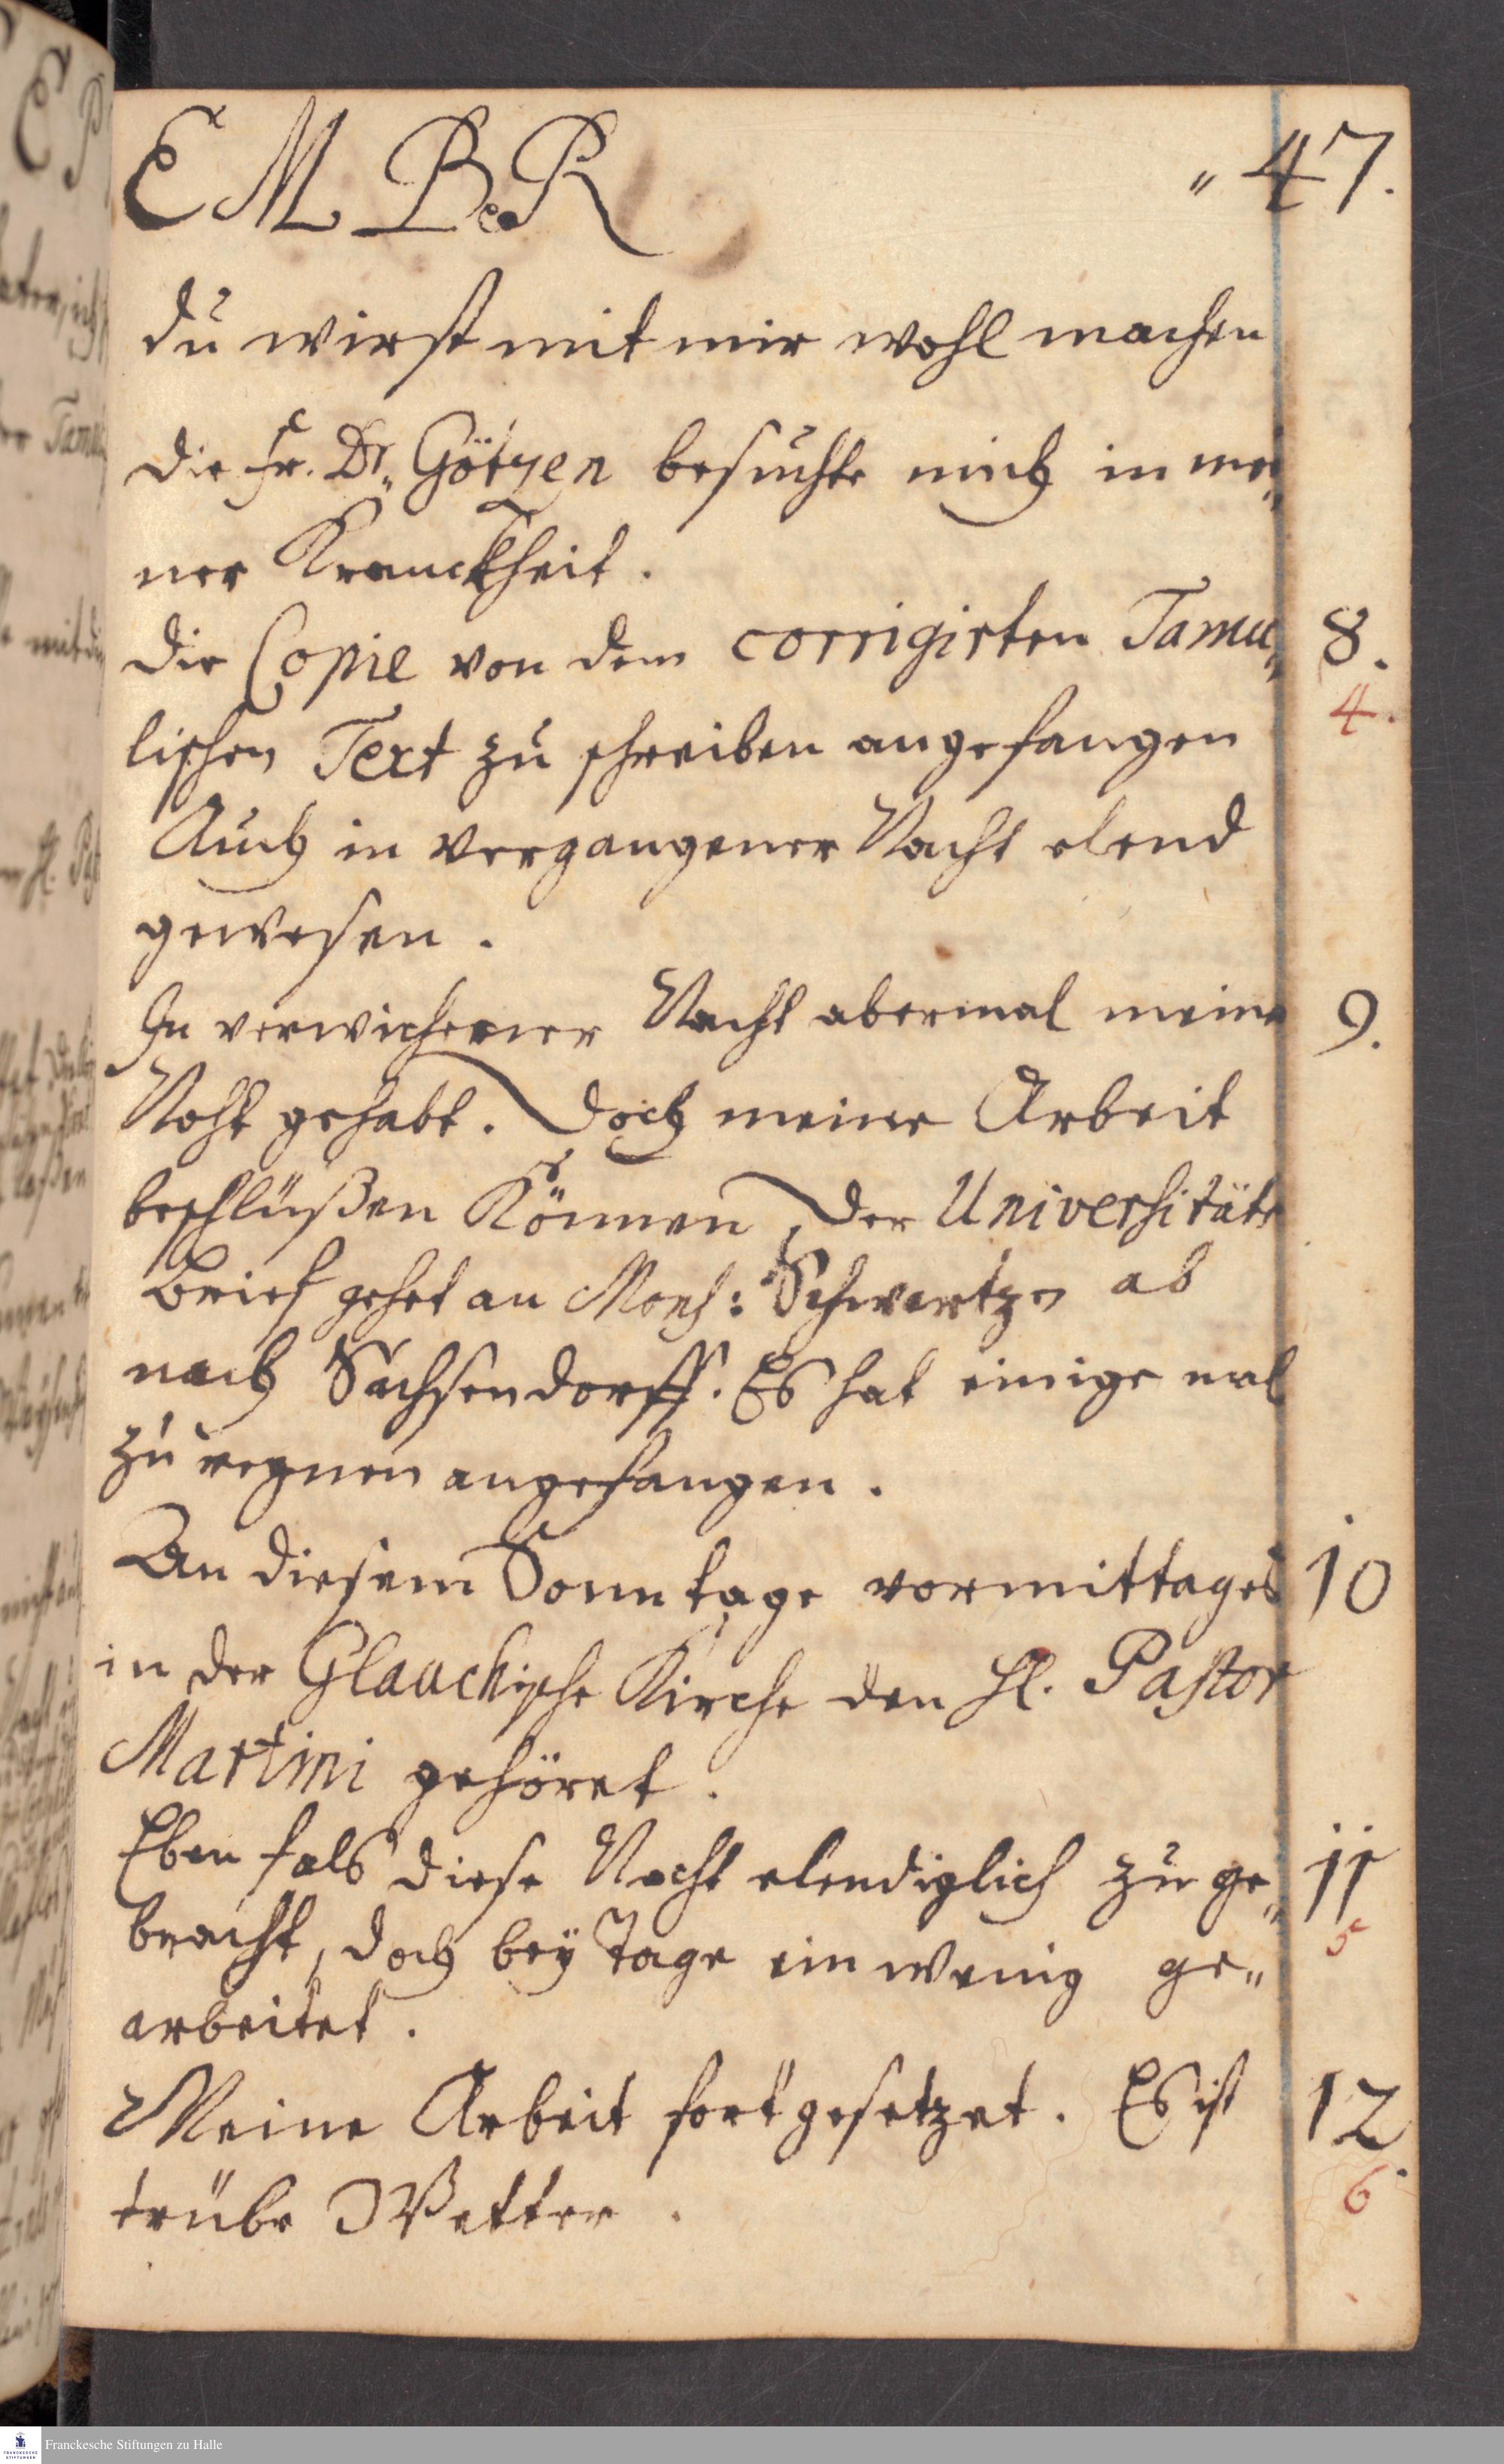 EMBeR „ 47.
du wirst mit mir wohl machen
die Fr. Dr. Götzen besuchte mich in mei„
ner Kranckheit.
die Copie von dem corrigirten Tamu„ 8.
4.
lischen Text zu schreiben angefangen
Auch in vergangener Nacht elend
gewesen.
In verwichener Nacht abermal meine 9.
Noht gehabt. Doch meine Arbeit
beschlüßen Können, der Universitäts
Brief gehet an Mons: Schwartzen ab
nach Sachsendorff. Es hat einige mal
zu regnen angefangen.
An diesem Sonntage vormittages 10
in der Glauchische Kirche den H. Pastor
Martini gehöret.
Eben fals diese Nacht elendiglich zu ge„ 11
5
bracht, doch bey Tage ein wenig ge„
arbeitet.
Meine Arbeit fortgesetzet. Es ist 12
6
trübe Wetter.
Franckesche Stiftungen zu Halle